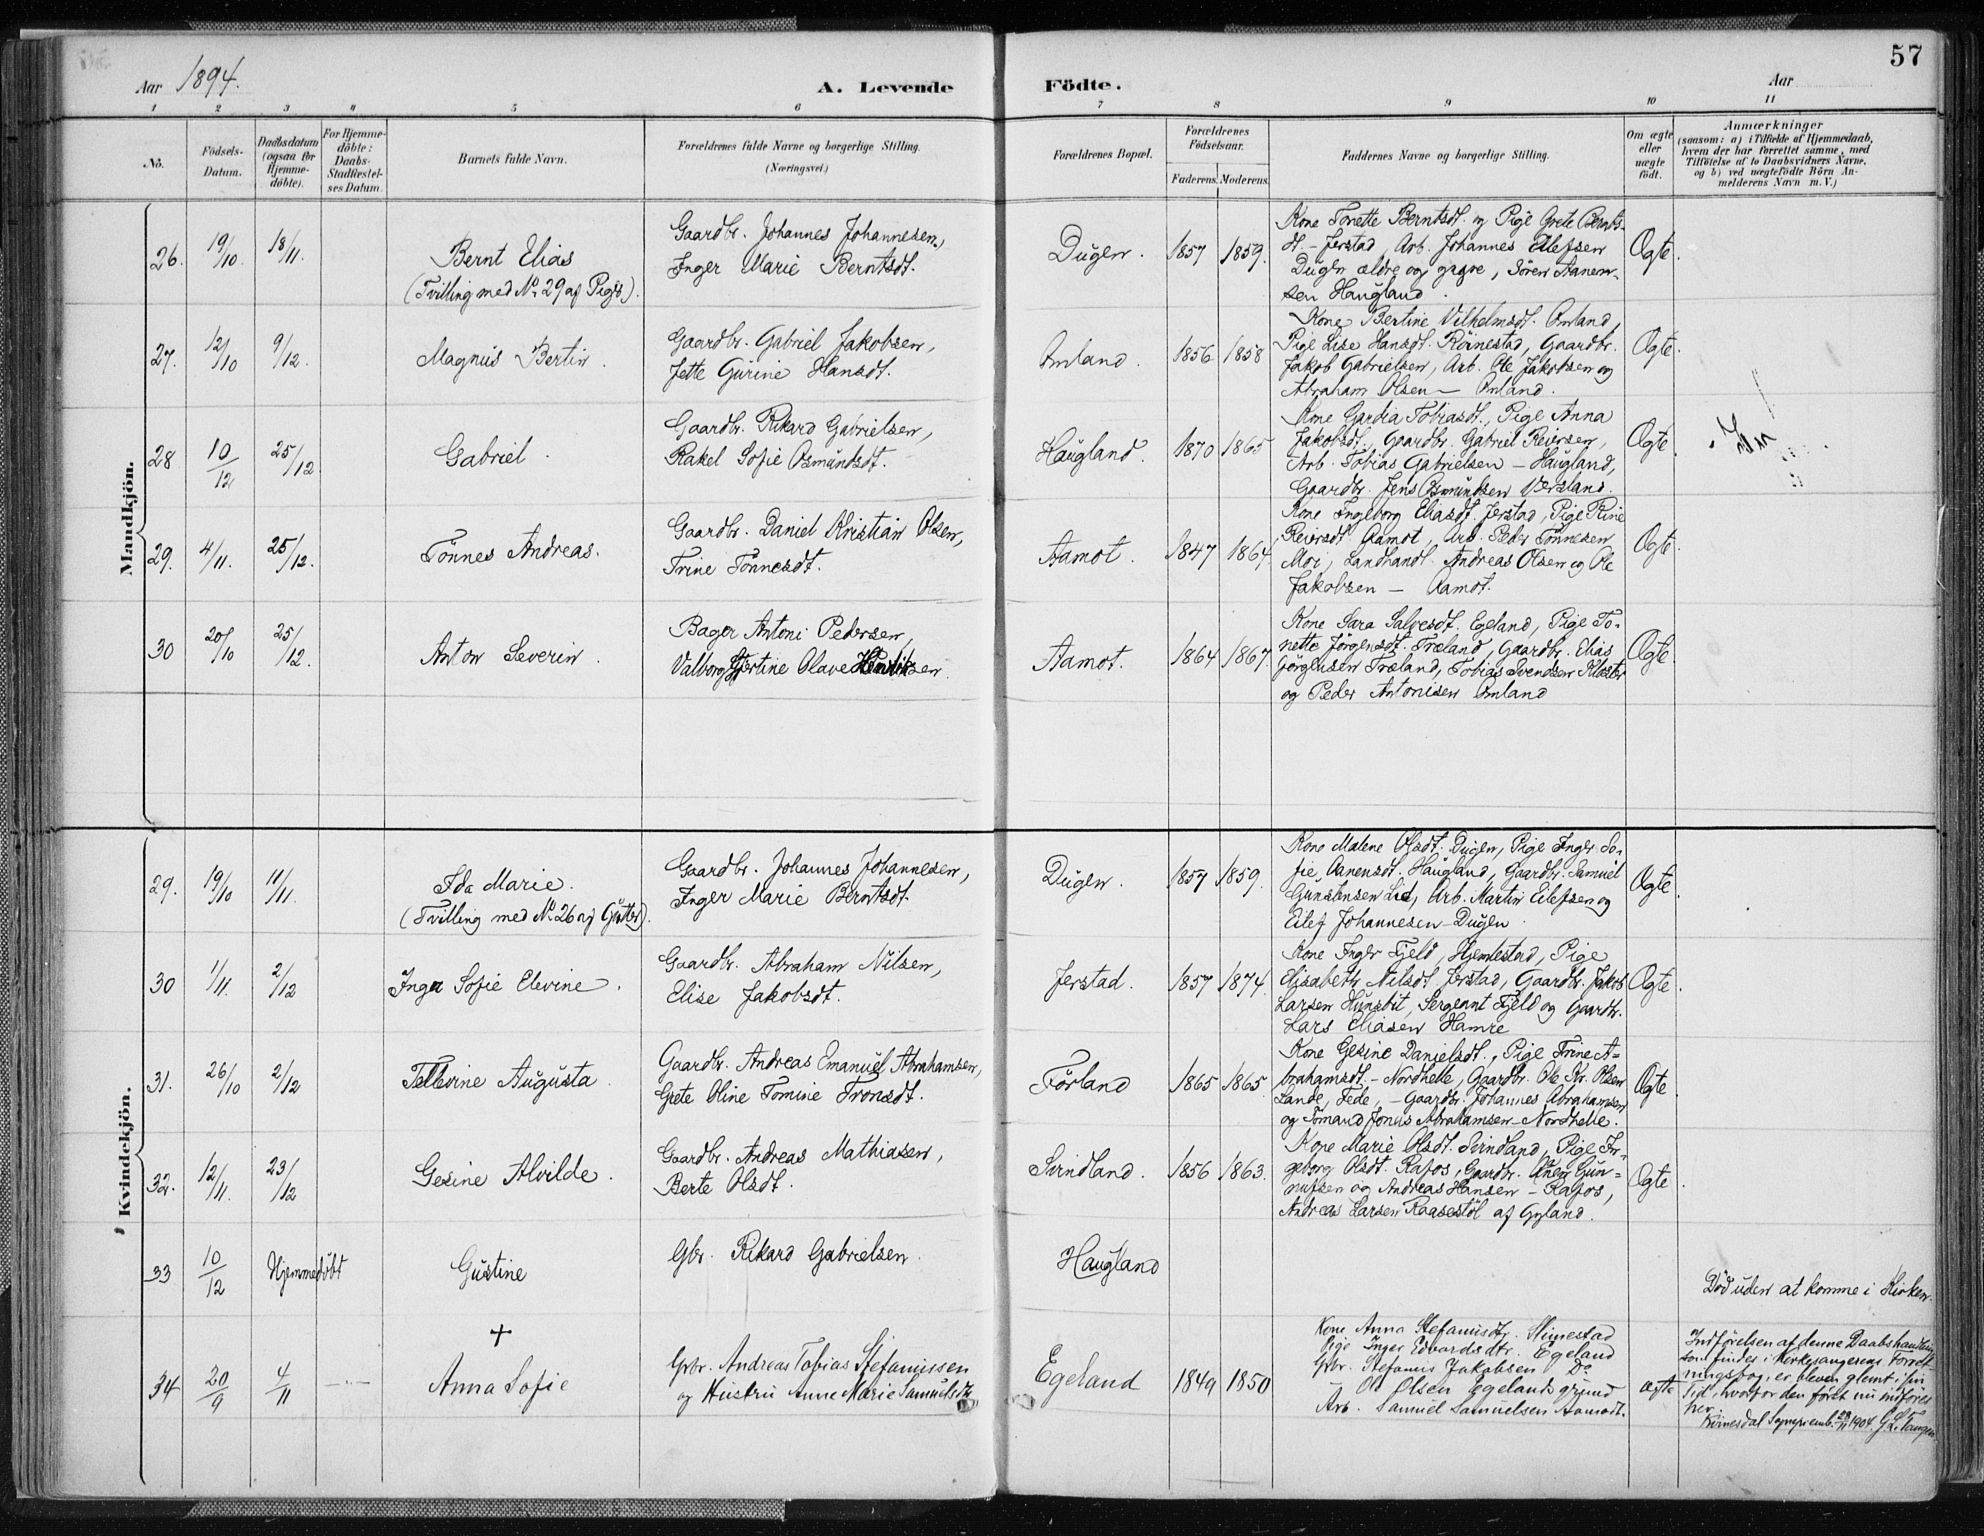 57
Aar 1894.
A. Levende Födte.
Aar
1 2 3 4 5 6 7 8 9 10 11
No.
Födsels-Datum.
Daabsdatum (ogsaa for Hjemme-döbte).
For Hjemme-döbte: Daabs-Stadfæstel-ses Datum.
Barnets fulde Navn.
Forældrenes fulde Navne og borgerlige Stilling.
(Næringsvei.)
Forældrenes Bopæl.
Forældrenes Födselsaar.
Faderens. Moderens.
Faddernes Navne og borgerlige Stilling.
Om ægte eller uægte födt.
Anmærkninger
(saasom: a) i Tilfælde af Hjemmedaab,
hvem der har forrettet samme, med
Tilföielse af to Daabsvidners Navne,
og b) ved uægtefödte Börn An-
melderens Navn m. V.)
Mandkjön.
26. 19/10. 18/11. Bernt Elias
(Tvilling med No. 29 af Piger).
Gaardbr. Johannes Johannesen,
Inger Marie Berntsdt.
Dugen. 1857 1859.
Kone Tonette Berntsdt. og Pige Grete Bernts-
dt. - Jerstad, Arb. Johannes Eilefsen
Dugen ældre og yngre, Sören Aanen-
sen Haugland.
Ægte.
27. 12/10 9/12. Magnus Bertin.
Gaardbr. Gabriel Jakobsen,
Jette Gurine Hansdt.
Omland. 1856 1858
Kone Bertine Vilhelmsdt. Omland,
Pige Lise Hansdt. Röinestad, Gaardbr.
Jakob Gabrielsen, Arb. Ole Jakobsen og
Abraham Olsen - Omland.
Ægte.
28 10/12 25/12. Gabriel.
Gaardbr. Rikard Gabrielsen,
Rakel Sofie Osmundsdt.
Haugland. 1870 1865
Kone Gardia Tobiasdt., Pige Anna
Jakobsdt., Gaardbr. Gabriel Reiersen,
Arb. Tobias Gabrielsen - Haugland,
Gaardbr. Jens Osmundsen Versland.
Ægte.
29. 4/11. 25/12. Tönnes Andreas.
Gaardbr. Daniel Kristian Olsen,
Trine Tönnesdt.
Aamot. 1847 1864.
Kone Ingeborg Eliasdt. Jerstad, Pige Rine
Reiersdt. Aamot, Arb. Peder Tönnesen
Moi, Landhandl. Andreas Olsen og Ole
Jakobsen - Aamot.
Ægte.
30 20/10 25/12. Anton Severin.
Bager Antoni Pedersen,
Valborg Hjertine Olave
Aamot. 1864 1867.
Kone Sara Salvesdt. Egeland, Pige To-
nette Jörgensdt. Træland, Gaardbr. Elias
Jörgensen Træland, Tobias Svendsen Kloster
og Peder Antonisen Omland
Ægte.
Kvindekjön.
29. 19/10 11/11. Ida Marie.
(Tvilling med No. 26 af Gutter).
Gaardbr. Johannes Johannesen,
Inger Marie Berntsdt.
Dugen. 1857 1859.
Kone Malene Olsdt. Dugen, Pige Inger So-
fie Aanensdt. Haugland, Gaardbr. Samuel
Gunstensen Lid, Arb. Martin Eilefsen og
Eilef Johannesen - Dugen
Ægte.
30 1/11. 2/12 Inga Sofie Elevine.
Gaardbr. Abraham Nilsen,
Elise Jakobsdt.
Jerstad. 1857 1874.
Kone Inger Fjeld, Hjemlestad, Pige
Elisabeth Nilsdt. Jerstad, Gaardbr. Jakob
Larsen Hunsbit, Sergeant Fjeld og Gaardbr.
Lars Eliasen Hamre
Ægte.
31. 26/10 2/12 Tellevine Augusta.
Gaardbr. Andreas Emanuel Abrahamsen,
Grete Oline Tomine Tronsdt.
Förland 1865 1865.
Kone Gesine Danielsdt., Pige Trine A-
brahamsdt. - Nordhelle, Gaardbr. Ole Kr. Olsen
Lande, Fede, - Gaardbr. Johannes Abrahamsen
og Tömand Jonas Abrahamsen - Nordhelle.
Ægte.
32. 12/11. 23/12 Gesine Alvilde.
Gaardbr. Andreas Mathiasen,
Berte Olsdt.
Svindland. 1856 1863.
Kone Marie Olsdt. Svindland, Pige In-
geborg Olsdt. Rafos, Gaardbr. Gun-
nufsen og Andreas Hansen - Rafos,
Andreas Larsen Raasestöl af Gyland.
Ægte.
33 10/12 Hjemmedöbt Gustine
Gbr. Rikard Gabrielsen.
Haugland
Död uden at komme i Kirken.
+
34 20/9 4/11 Anna Sofie
Gbr. Andreas Tobias Stefanussen
og Hustru Anne Marie Samuelsdt.
Egeland 1849 1850
Kone Anna Stefanusdtr. Slimestad
Pige Inger Edvardsdtr. Egeland
Gbr. Stefanus Jakobsen Do
Ole Olsen Egelandsgrund
Arb. Samuel Samuelsen Aamodt.
ægte
Indförelsen af denne Daabshandling,
som findes i Kirkesangerens Forret-
ningsbog, er bleven glemt i sin
Tid, hvorfor den först nu indföres
her.
Kvinesdal Sognepremb. 28/11 1904. G. L. Tangen.